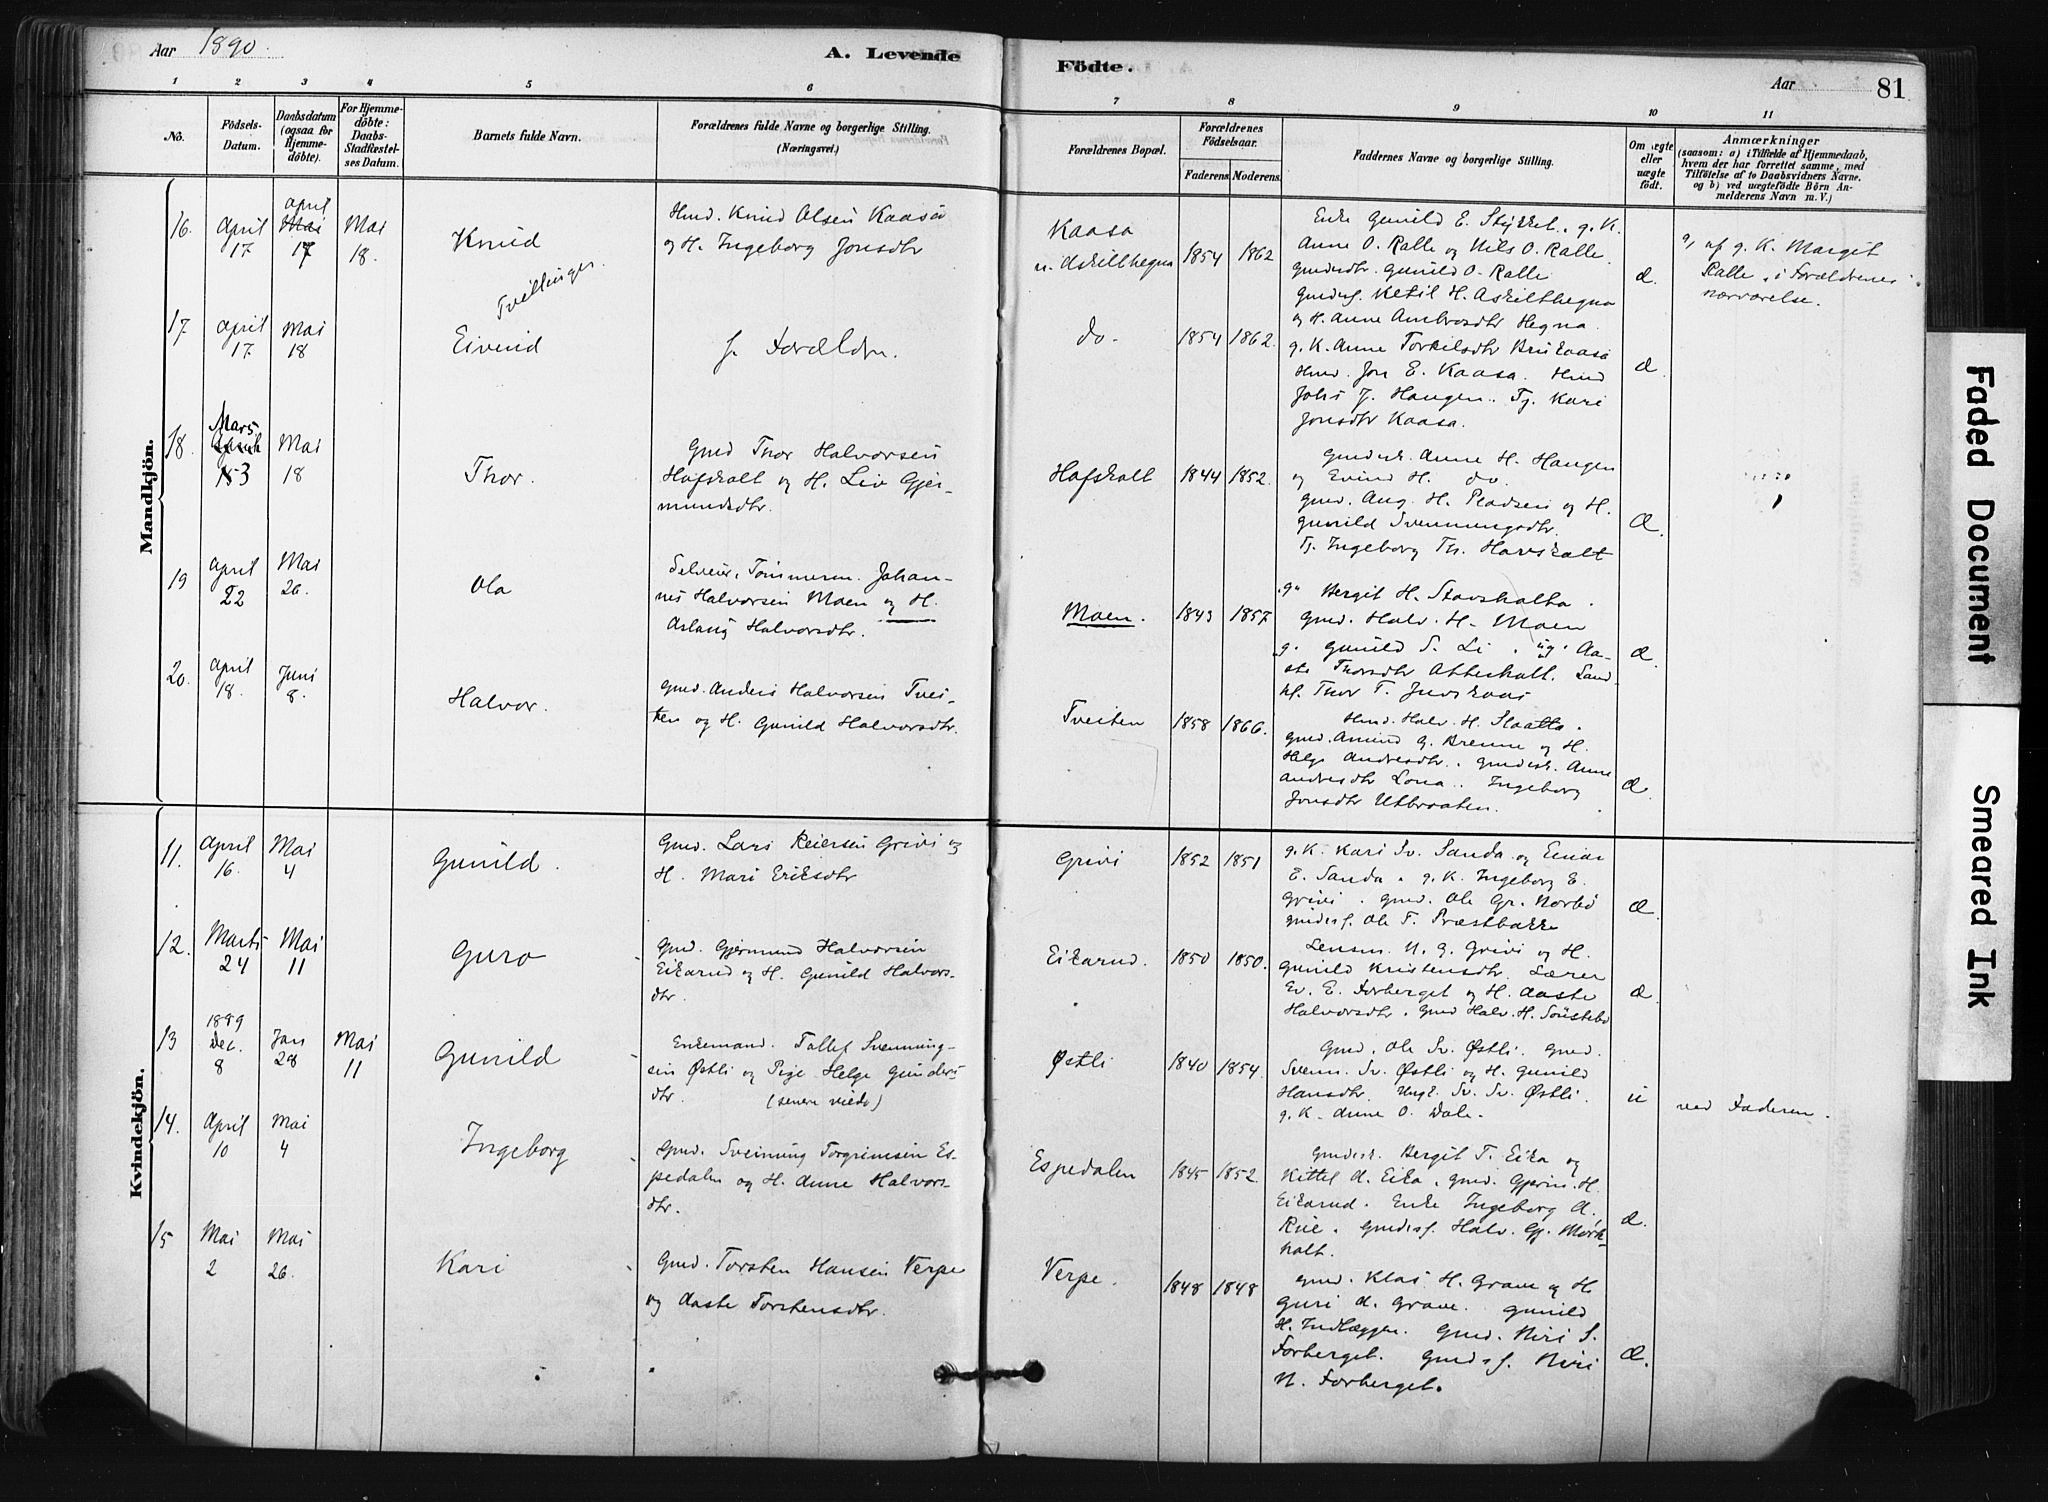 Aar 1890.
A. Levende
Födte.
Aar
81
1 2 3 4 5 6 7 8 9 10 11
No.
Födsels-
Datum.
Daabsdatum
(ogsaa for
Hjemme-
döbte).
For Hjemme-
döbte:
Daabs-
Stadfæstel-
ses Datum.
Barnets fulde Navn.
Forældrenes fulde Navne og borgerlige Stilling.
(Næringsvei.)
Forældrenes Bopæl.
Forældrenes
Födselsaar.
Faderens. Moderens.
Faddernes Navne og borgerlige Stilling.
Om ægte
eller
uægte
födt.
Anmærkninger
(saasom: a) i Tilfælde af Hjemmedaab,
hvem der har forrettet samme, med
Tilföielse af to Daabsvidners Navne.
og b) ved uægtefödte Börn An-
melderens Navn m. V.)
Mandkjön.
16. April 17 april Mai 17 Mai 18. Knud
Hmd. Knud Olsen Kaasa
og H. Ingeborg Jonsdtr
Kaasa
u. Askilthegna 1854 1862
Enke Gunild E. Stykket. g. K.
Anne O. Ralle og Nils O. Ralle.
gmdsdtr. Gunild O. Ralle
gmdssf. Ketil H. Askilthegna
og H. Anne Ambrosdtr Hegna.
æ.
a, af g. K. Margit
Ralle, i Forældrenes
nærværelse.
Tvillinger.
17 April 17. Mai 18 Eivind
f. Forældre.
do. 1854 1862.
g. K. Anne Torkilsdtr Brukaasa
Hmd. Jon E. Kaasa. Hmd
Johs J. Haugen. Tj. Kari
Jonsdtr Kaasa.
æ.
18. Mars 3 Mai 18 Thor.
Gmd Thor Halvorsen
Hafskalt og H. Liv Gjer-
mundsdtr.
Hafskalt 1844 1852.
Gmdsk. Anne H. Haugen
og Eivind H. do.
gmd. Aug. H. Pladsen og H.
gunild Svennungsdtr.
Tj. Ingeborg Th. Havskalt
Æ.
19 April 22 Mai 26. Ola
Selveier, Tömmerm. Johan-
nes Halvorsen Moen og H.
Aslaug Halvorsdtr.
Moen. 1843 1857
"g" Bergit H. Stavskalta.
gmd. Halv. H. Moen
"g" gunild S. Li. "ug" Aa-
ste Thorsdtr Atteskalt. Sand-
kf. Thor T. Juvskaas
æ.
20. April 18. Juni 8. Halvor.
gmd. Anders Halvorsen Tvei-
ten og H. Gunild Halvorsdtr.
Tveiten 1858 1866.
Hmd. Halv. H. Slaatta.
gmd. Amund G. Brenne og H.
Helge Andersdtr. gmdssk. Anne
andersdtr Lona. Ingeborg
Jonsdtr Utbraaten.
æ.
Kvindekjön.
11. April 16. Mai 4 Gunild.
Gmd. Lars Reiersen Grivi og
H. Mari Eriksdtr
Grivi 1852 1851
g. K. Kari Sv. Sanda og Einar
E. Sanda. g. K. Ingeborg E.
Grivi. gmd. Ole Gr. Norbö
gmdssf. Ole T. Præstbakke
Æ.
12. Marts 24 Mai 11 Guro
Gmd. Gjermund Halvorsen
Eikarud og H. Gunild Halvors-
dtr.
Eikarud. 1850 1850.
Lensm. N. G. Grivi og H.
Gunild Kristensdtr. Lærer
Ev. E. Forberget og H. Aaste
Halvorsdtr. gmd Halv. H. Söustebö
æ.
13 1889 Dec. 8 Jan 28 Mai 11 Gunild
Enkemand. Tallef Svennung-
sen Østli og Pige Helge Gunders-
dtr. (senere viede)
Østli 1840 1854.
Gmd. Ole Sv. Østli. Gmd.
Svenn. Sv. Østli og H. Gunild
Hansdtr. Ungk. Sv. Sv. Østli.
g. K. Anne O. Dale.
u
ved Faderen.
14. April 10 Mai 4 Ingeborg
Gmd. Sveinung Torgrimsen Es-
pedalen og H. Anne Halvors-
dtr.
Espedalen 1845 1852.
Gmdssk. Bergit T. Eika og
Kittel A. Eika. gmd. Gjerm. H.
Eikarud. Enke Ingeborg A.
Rue. Gmdssf. Halv. Gj. Mörk-
halt.
æ.
15 Mai 2 Mai 26. Kari
Gmd. Torsten Hansen Verpe
og Aaste Torstensdtr.
Verpe. 1848 1848
gmd. Klas H. Grave og H
Guri A. Grave. gunild
H. Indlæggen. Gmd. Niri S.
Forberget. Gmdssf. Niri
N. Forberget.
Æ.
Faded Document
Smeared Ink